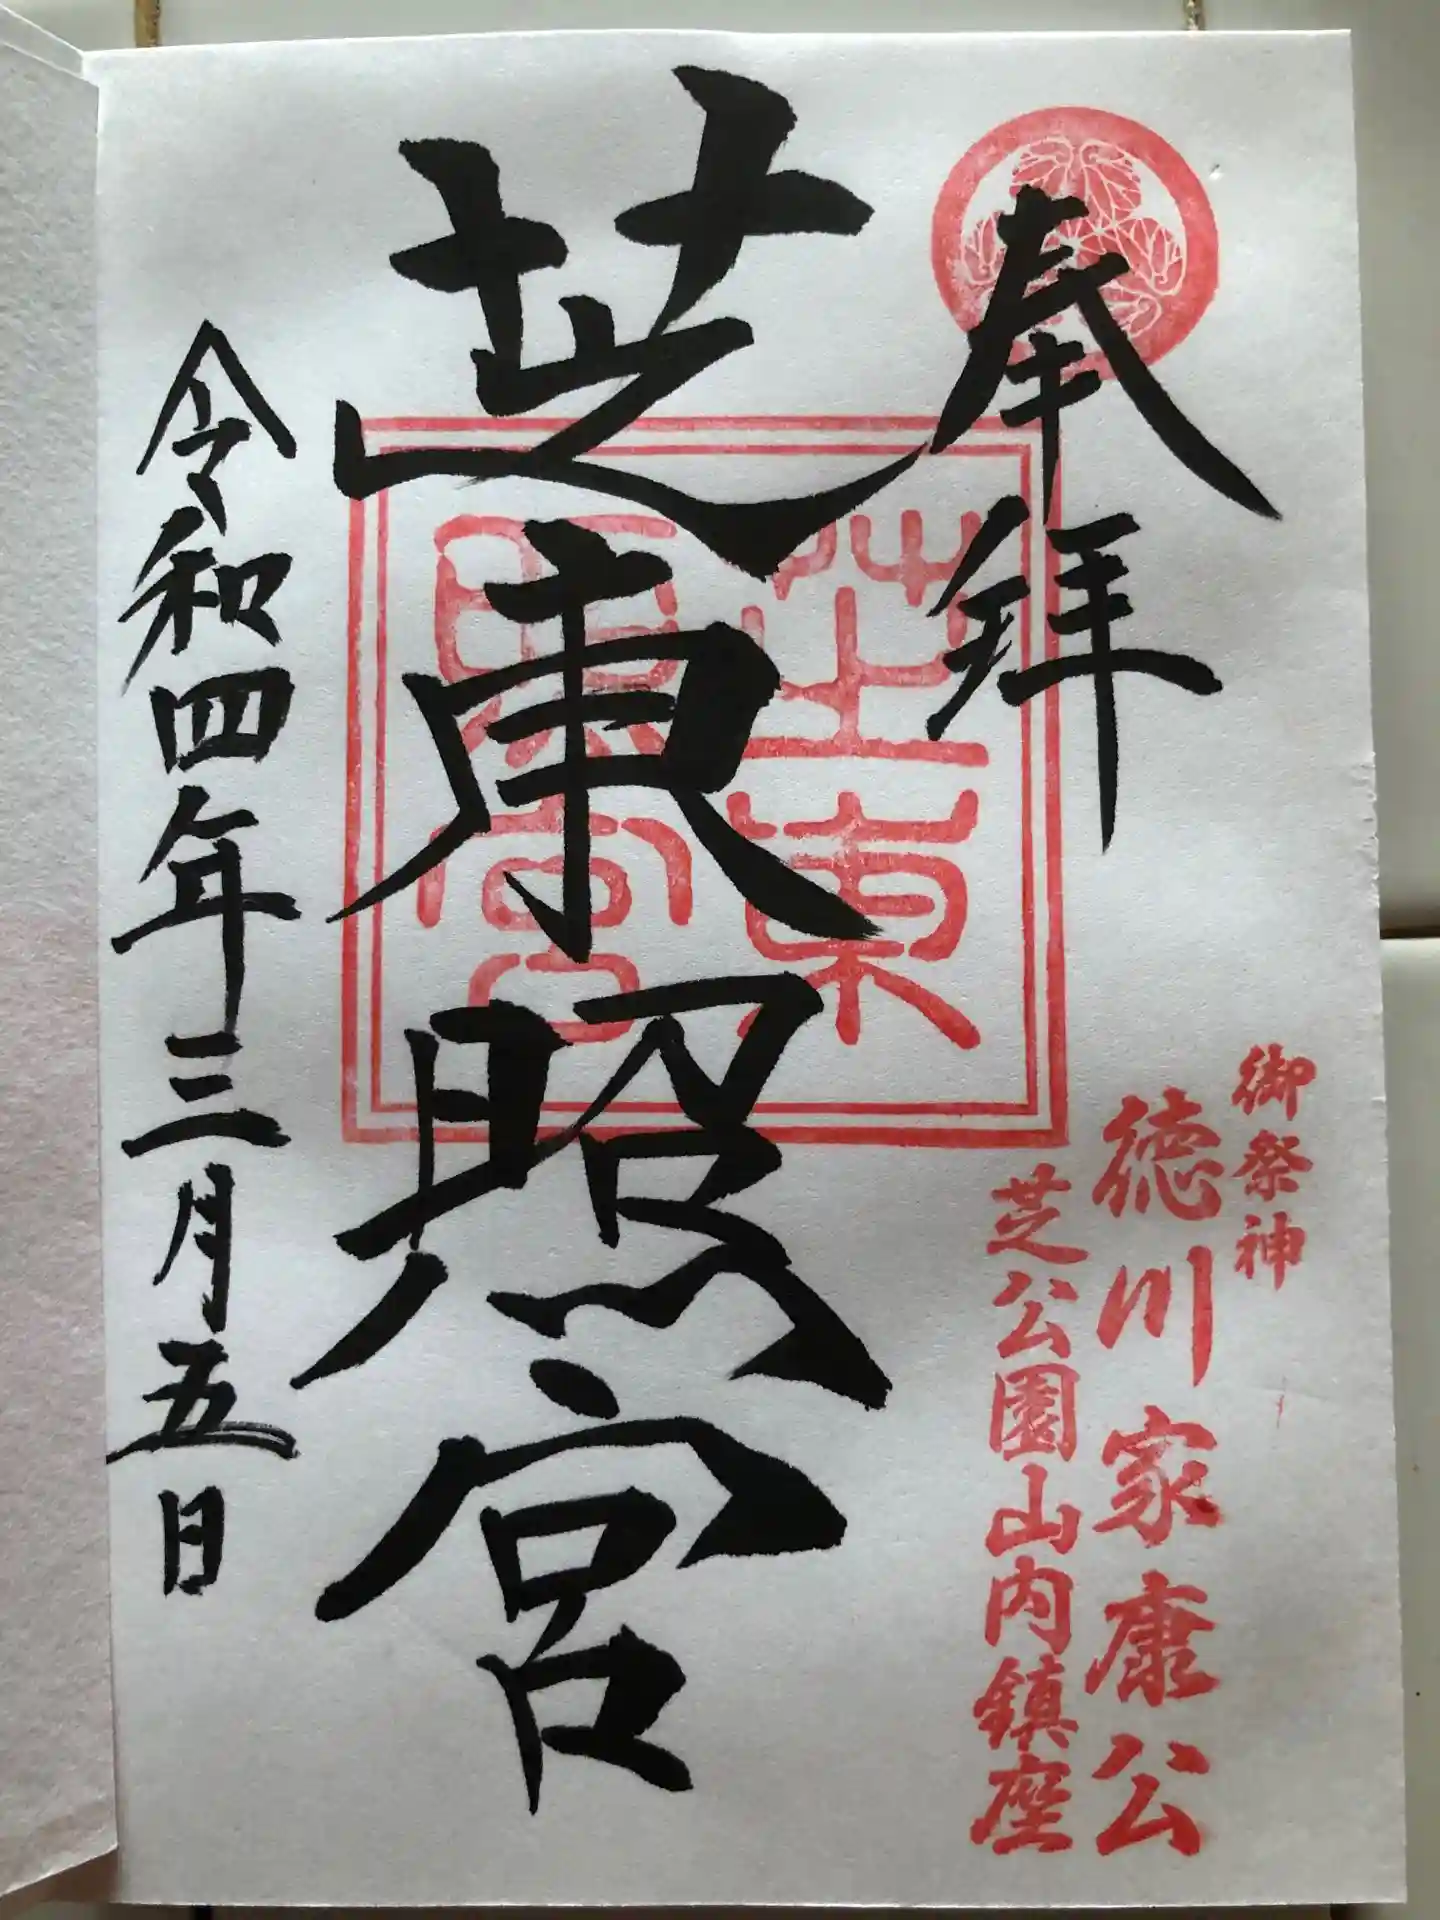 奉拝
御祭神
徳川家康公
芝公園山内鎮座
芝東
照宮
芝東照宮
令和四年三月五日